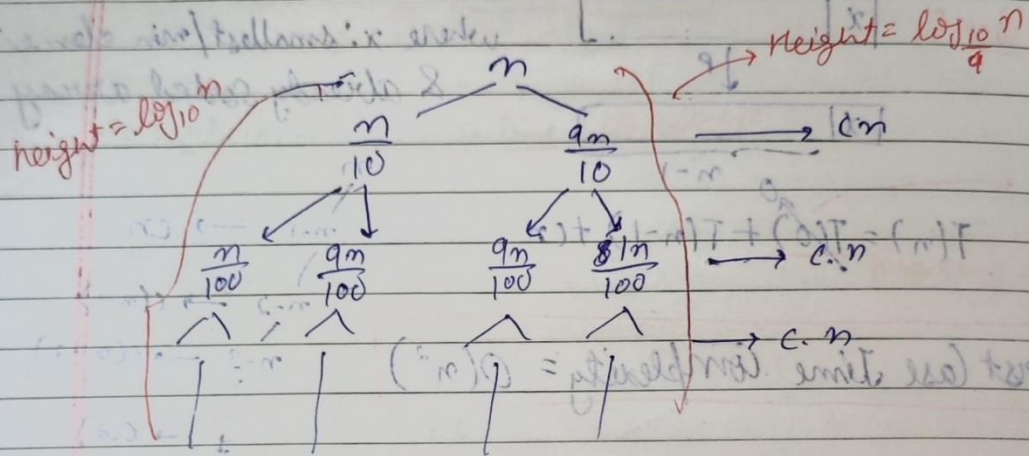 n
height = log₁₀ n
height = log_{10/9} n
n/10 9n/10 → cn
n/100 9n/100 9n/100 81n/100 → c.n
→ c.n